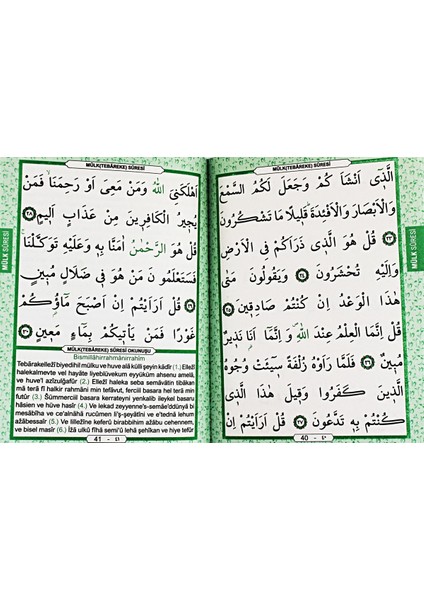 MÜLK(TEBÂREKE) SÛRESİ
اَلَّذٖٓي اَنْشَاَ كُمْ وَجَعَلَ لَكُمُ السَّمْعَ
وَالْاَبْصَارَ وَالْاَفْئِدَةَ قَلٖيلًا مَا تَشْكُرُونَ
﴿٢٣﴾ قُلْ هُوَ الَّذٖي ذَرَاَكُمْ فِي الْاَرْضِ
وَاِلَيْهِ تُحْشَرُونَ ﴿٢٤﴾ وَيَقُولُونَ مَتٰى
هٰذَا الْوَعْدُ اِنْ كُنْتُمْ صَادِقٖينَ ﴿٢٥﴾
قُلْ اِنَّمَا الْعِلْمُ عِنْدَ اللّٰهِ وَ اِنَّمَٓا اَنَا نَذٖيرٌ
مُبٖينٌ ﴿٢٦﴾ فَلَمَّا رَاَوْهُ زُلْفَةً سٖٓيـَٔتْ وُجُوهُ
الَّذٖينَ كَفَرُوا وَقٖيلَ هٰذَا الَّذٖي
كُنْتُمْ بِهٖ تَدَّعُونَ ﴿٢٧﴾ قُلْ اَرَاَيْتُمْ اِنْ
40 - ٤٠
MÜLK SÛRESİ
MÜLK(TEBÂREKE) SÛRESİ
اَهْلَكَنِيَ اللّٰهُ وَمَنْ مَعِيَ اَوْ رَحِمَنَا فَمَنْ
يُجٖيرُ الْكَافِرٖينَ مِنْ عَذَابٍ اَلٖيمٍ ﴿٢٨﴾
قُلْ هُوَ الرَّحْمٰنُ اٰمَنَّا بِهٖ وَعَلَيْهِ تَوَكَّلْنَا
فَسَتَعْلَمُونَ مَنْ هُوَ فٖي ضَلَالٍ مُبٖينٍ
﴿٢٩﴾ قُلْ اَرَاَيْتُمْ اِنْ اَصْبَحَ مَٓاؤُكُمْ
غَوْرًا فَمَنْ يَأْتٖيكُمْ بِمَٓاءٍ مَعٖينٍ ﴿٣٠﴾
MÜLK(TEBÂREKE) SÛRESİ OKUNUŞU
Bismillâhirrahmânirrahîm
Tebârakellezî biyedihil mülku ve huve alâ külli şeyin kadîr (1.) Ellezî
halekalmevte vel hayâte liyeblüvekum eyyüküm ahsenu amelâ,
ve huve'l azîzulğafûr (2.) Ellezî haleka seba semâvâtin tibâkan
mâ terâ fî halkir rahmâni min tefâvut, fercial basara hel terâ min
futûr (3.) Sümmerciil basara kerrateyni yenkalib ileykel basaru
hâsien ve hüve hasîr (4.) Ve lekad zeyyenne's-semâe'ddünyâ bi
mesâbîha ve ce'alnâhâ rucûmen li'ş-şeyâtîni ve e'tednâ lehum
azâbessaîr (5.) Ve lillezîne keferû birabbihim azâbu cehennem,
ve bisel masîr (6.) İzâ ulkû fîhâ semi'û lehâ şehîkan ve hiye tefûr
41 - ٤١
MÜLK SÛRESİ